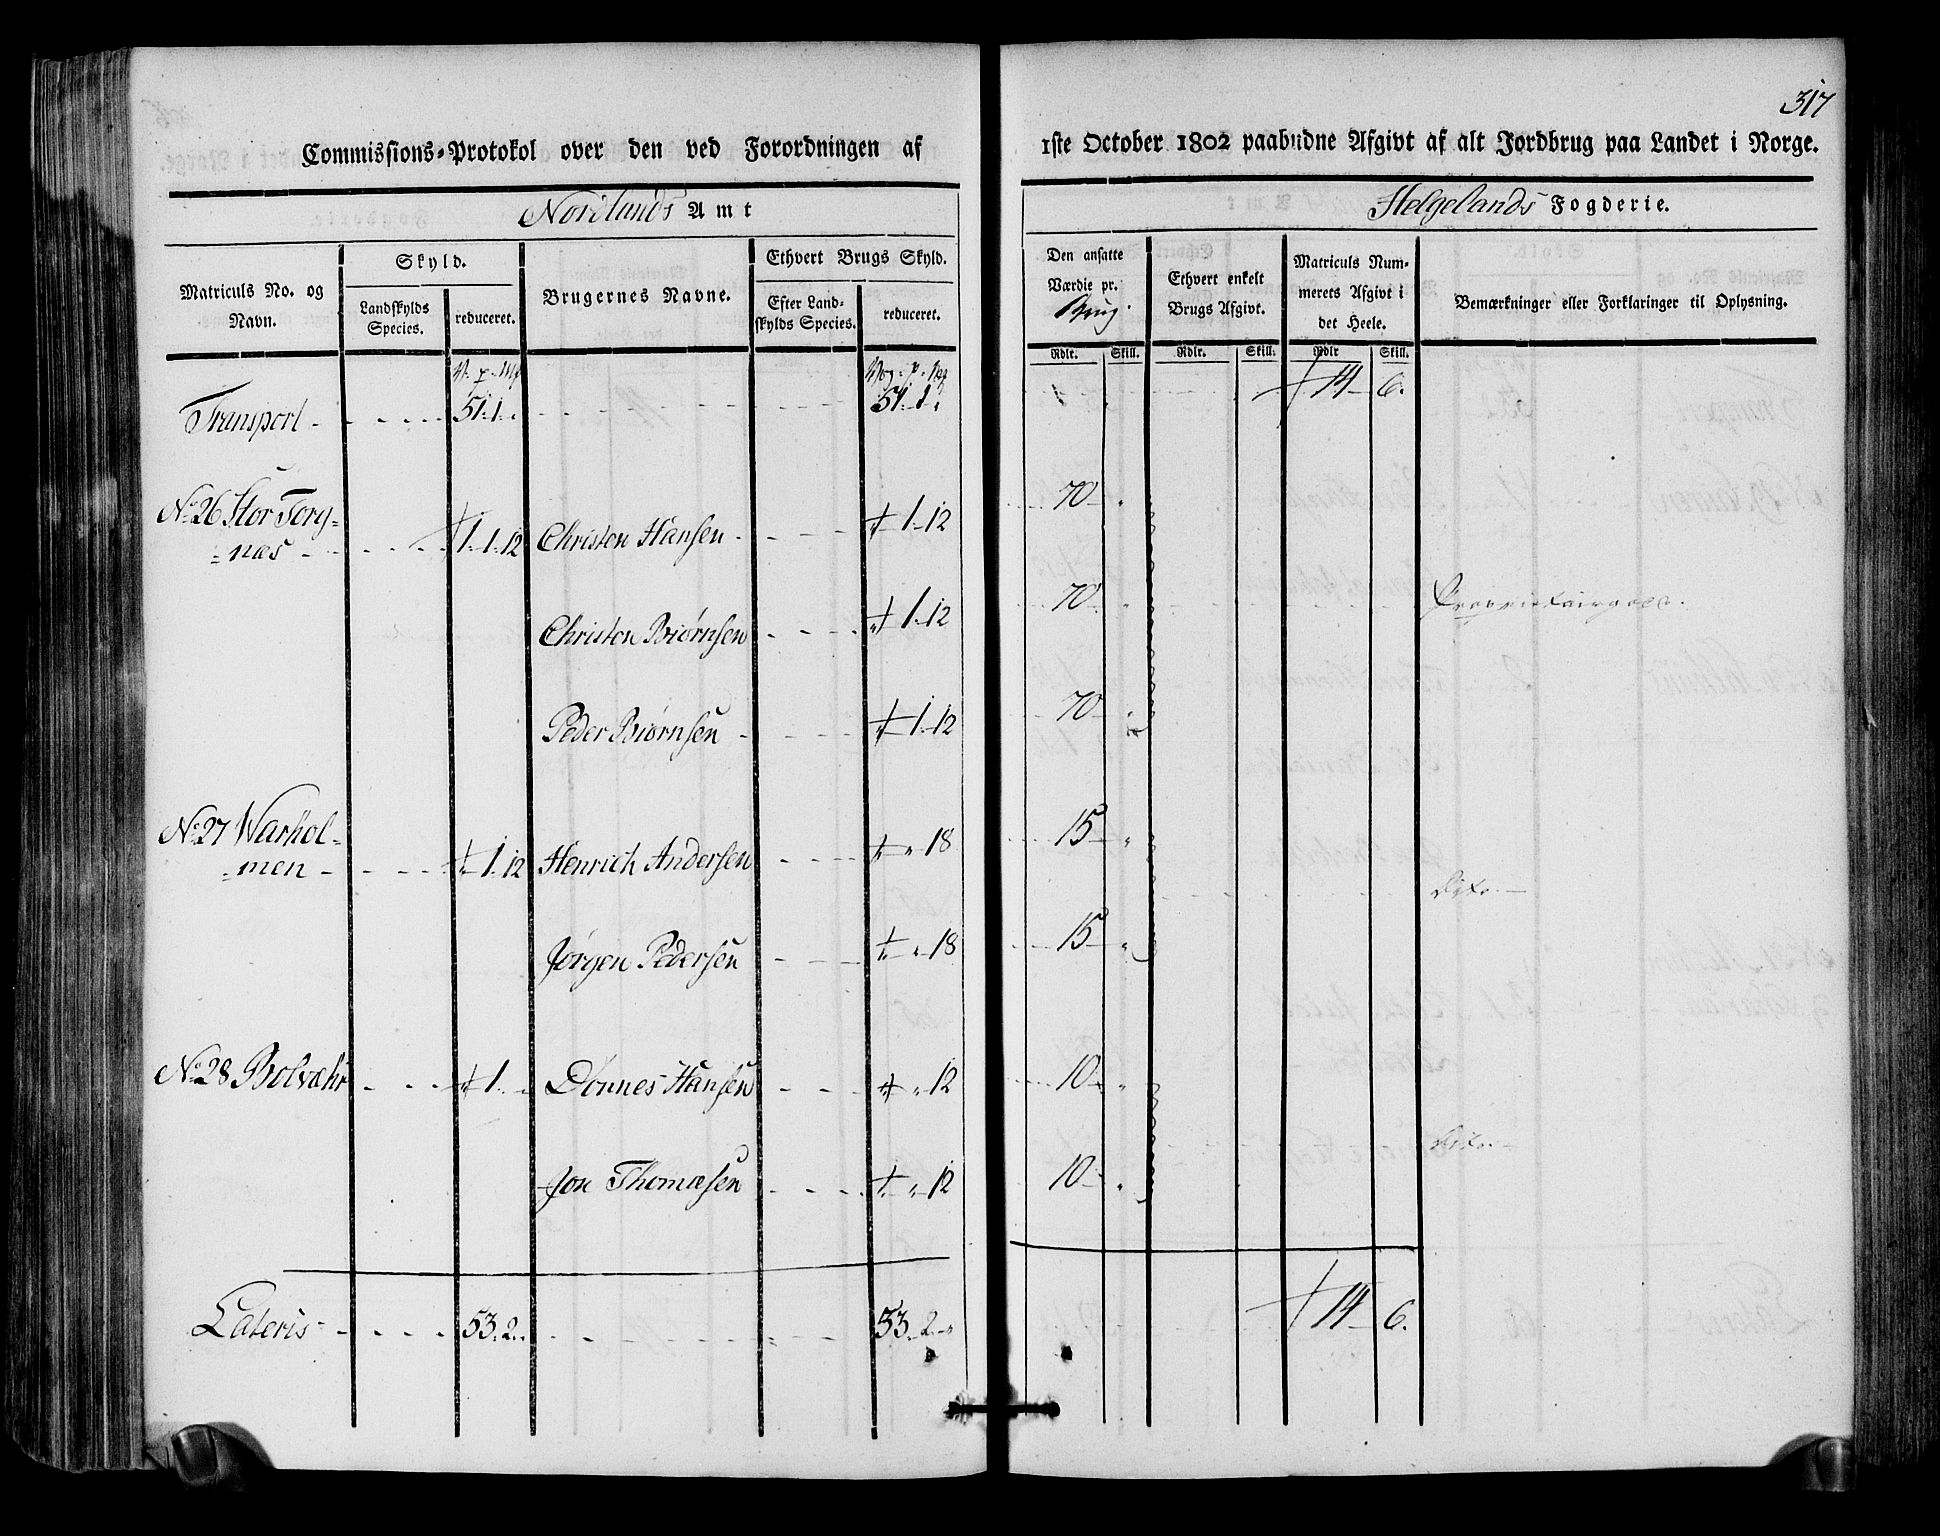 317
Commissions-Protokol over den ved Forordningen af 1ste October 1802 paabudne Afgivt af alt Jordbrug paa Landet i Norge.
Nordlands Amt
Helgelands Fogderie.
Matriculs No. og Navn.
Skyld.
Landskylds Species.
reduceret.
Brugernes Navne.
Ethvert Brugs Skyld.
Efter Landskylds Species.
reduceret.
Den ansatte Værdie pr. Brug.
Rdlr. Skill.
Ethvert enkelt Brugs Afgivt.
Rdlr. Skill.
Matriculs Nummerets Afgivt i det Heele.
Rdlr Skill.
Bemærkninger eller Forklaringer til Oplysning.
Transport 51. 1. 51. 1. 14 6.
No 26 Stor Torg=
=næs 1. 1. 12 Christen Hansen 1. 12 70
Christen Biørnsen 1. 12 70
Peder Biørnsen 1. 12 70
No 27 Warhol=
=men 1. 12 Henrich Andersen 18 15
Dito.
Jørgen Pedersen 18 15
No 28 Bolvæhr 1. Dønnes Hansen 12 10
Dito.
Jon Thomæsen 12 10
Lateris 53. 2. 53. 2. 14 6.